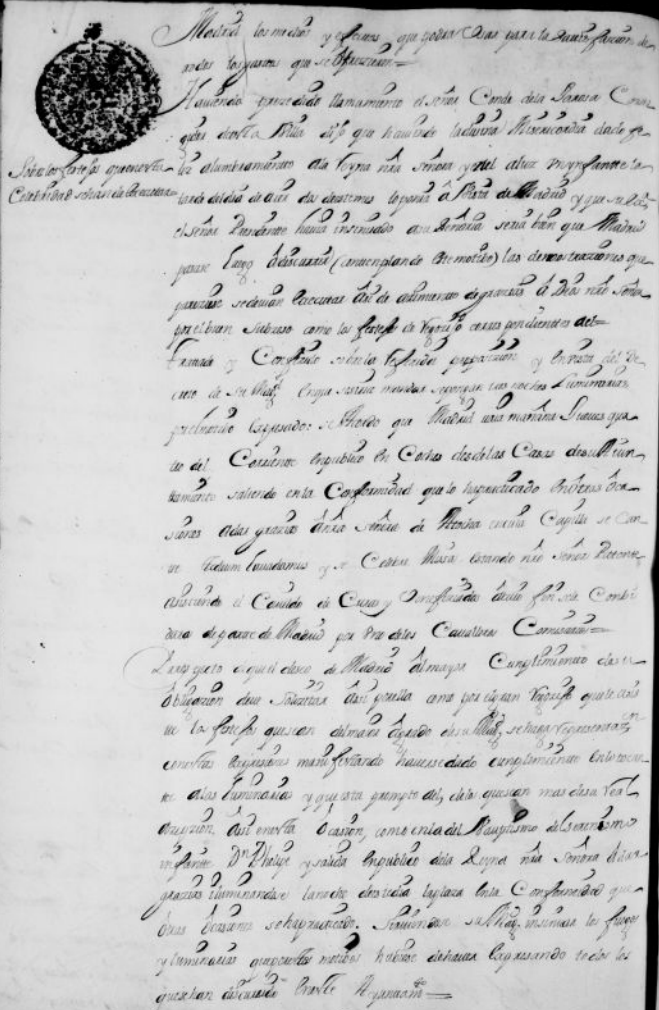 Madrid los medios y efectos, que podra usar para la satisfacion de
todos los gastos que se ofrecieren=
Haviendo precedido llamamiento el señor Conde de la
desta Villa dijo que haviendo la divina Misericordia dado fe
Sobre los festejos que en esta
liz alumbramiento a la Reyna nra señora y en el a luz un ynfante la
Celebridad se han de executar=
tarde del dia de ayer dos deste mes lo ponia en notizia de Madrid y que
el señor Presidente havia insinuado a su Señoria seria bien que Madrid
pasase luego a discurrir (contemplando este motibo) las demostraziones que
pareziese se devian executar asi de hazimiento de grazias a Dios nro Señor
por el buen subzeso como los festejos de regozijo correspondientes del=
Tratado y Conferido sobre la referida proposizion y en vista del De
creto de su Magd en que se sirve mandar se pongan tres noches Luminarias
por el motibo expresado: se Acordo que Madrid vaia mañana Jueves qua
tro del Corriente en publico en Coches desde las Casas de su Ayun
tamiento saliendo en la Conformidad que lo ha practicado en otras oca
siones a dar grazias a nra señora de Atocha en cuia Capilla se Can
te Tedeum laudamus y se Celebre Misa estando nro señor
asistiendo el Cavildo de Curas y Benefiziados a cuio fin se le Combi
dara de parte de Madrid por dos de los Cavalleros Comisarios=
Y respecto de que el deseo de Madrid al mayor Cumplimiento de su
obligazion deve solicitar asi por ella como por el gran regozijo que le asis
te los festejos que sean del maior agrado de su Magd, se haga representazon
con estas expresiones manifestando haverse dado cumplimiento en lo tocan
te a las luminarias y que esta prompto a los que sean mas de su real
azeptazion, asi en esta ocasion, como en la del Bauptismo del serenisimo
infante Dn Phelipe y salida en publico de la Reyna nra Señora a dar
grazias iluminandose la noche deste dia la plaza en la Conformidad que
otras ocasiones se ha practicado. Sirviendose su Magd. insinuar los fuegos
y luminarias que por estos motibos hubiese de haver expresando todos los
que se han discurrido en este Ayuntamto=